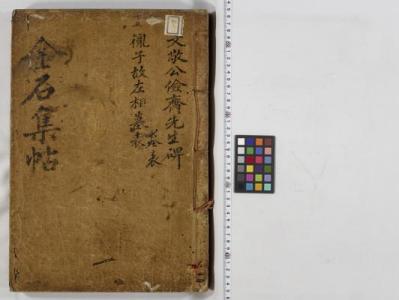 文敬公儉齋先生碑
襯子故左相墓表
金石集帖